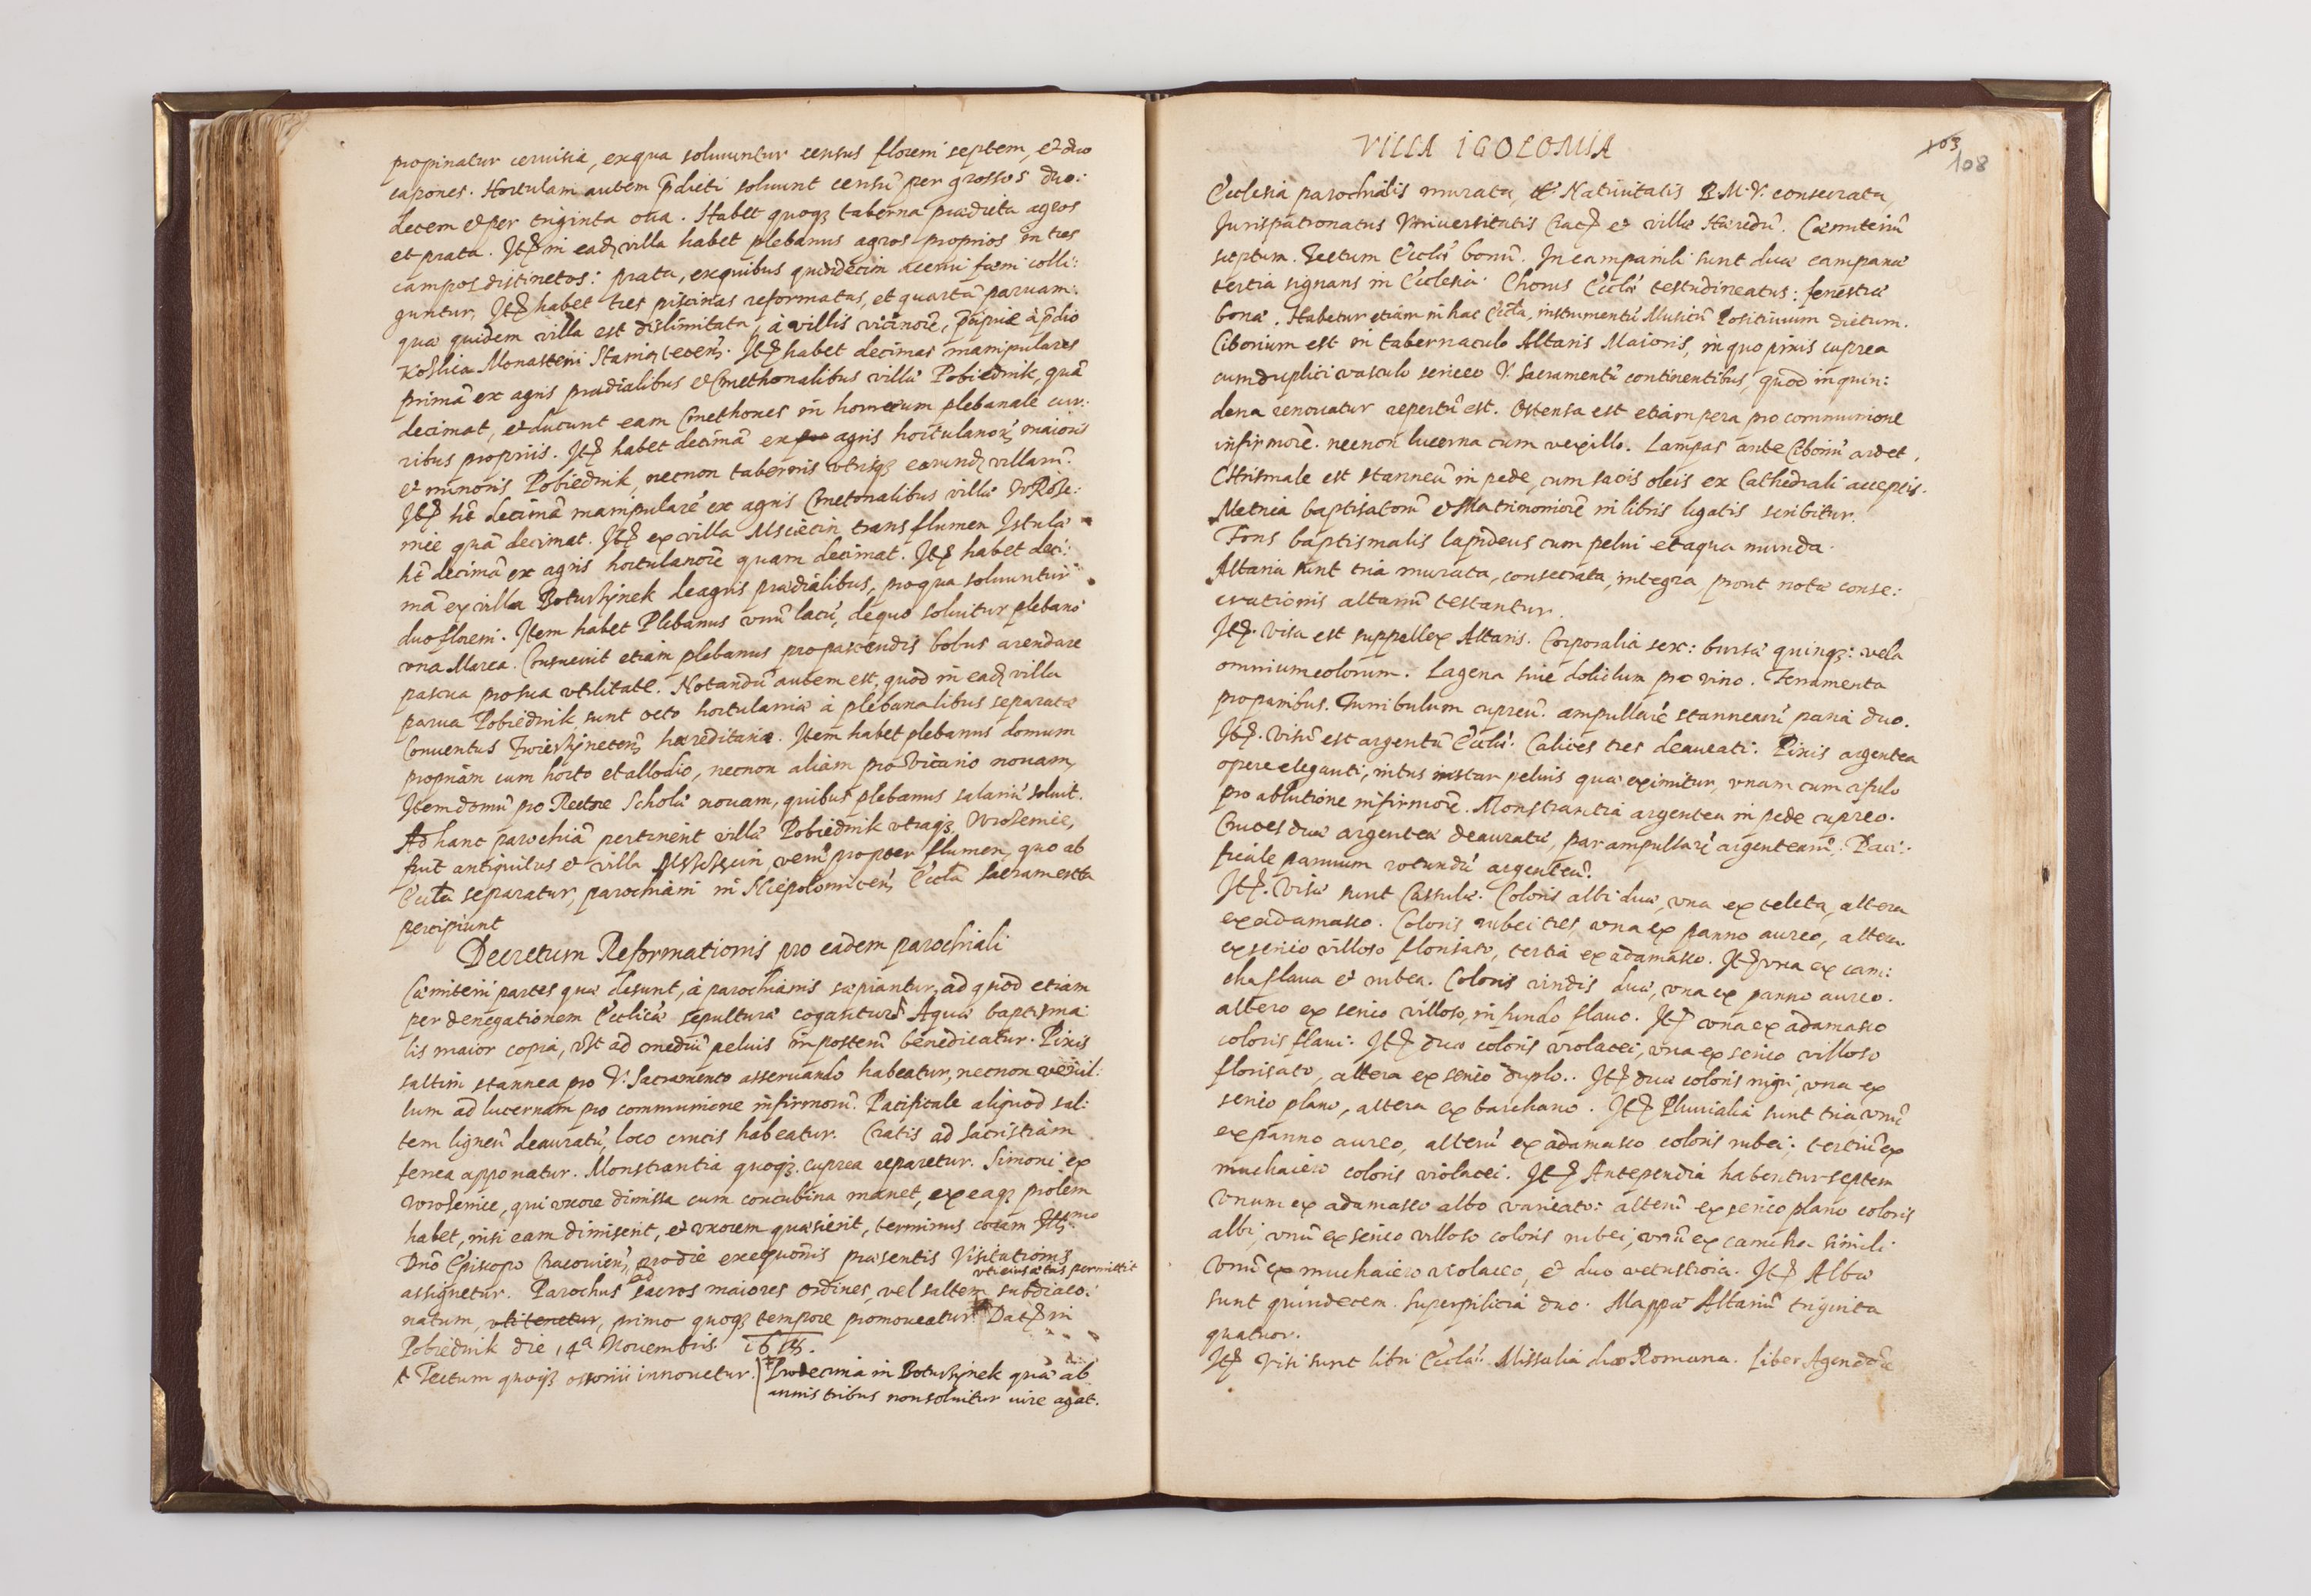 propinatur ceruisia, ex qua soluuntur census floreni septem, et duo
capones. Hortulani autem p̃dicti soluunt censũ per grossos duo:
decem et per triginta oua. Habet quoqꝫ taberna prædicta agros
et prata. Itẽ in eadꝫ villa habet plebanus agros proprios in tres
campos distinctos: prata, ex quibus quindecim acerui fœni colli:
guntur, Itẽ habet tres piscinas reformatas, et quartã paruam:
quæ quidem villa est dislimitata, à villis vicinorũ, p̃cipuè à p̃dio
Koślica Monasterij Staniątecen̄. Itẽ habet decimas manipulares
primã ex agris prædialibus et Cmethonalibus villæ Pobiednik, quã
decimat, et ducunt eam Cmethones in horreum plebanale cur:
ribus proprijs. Itẽ habet decimã ex agris hortulanorũ maioris
et minoris Pobiednik, necnon tabernis vtriqꝫ earundꝫ villarũ.
Itẽ ht̃ decimã manipularẽ ex agris Cmetonalibus villæ Wroże:
nie quã decimat. Itẽ ex villa Msciecin trans flumen Istulã
ht̃ decimã ex agris hortulanorũ quam decimat. Itẽ habet deci:
mã ex villa Boturzynek de agris prædialibus, pro qua soluuntur
duo floreni. Item habet Plebanus vnũ lacũ, de quo soluitur plebano
vna Marca. Consueuit etiam plebanus pro pascendis bobus arendare
pascua pro sua vtilitate. Notandũ autem est, quod in eadꝫ villa
parua Pobiednik sunt octo hortulaniæ à plebanalibus separatæ
Conuentus Zwierzynecen̄ hæreditariæ. Item habet plebanus domum
propriam cum horto et allodio, necnon aliam pro Vicario nouam,
Item domũ pro Rectore Scholæ nouam, quibus plebanus salariũ soluit.
Ad hanc parochiã pertinent villæ Pobiednik vtraqꝫ, Wrożenie,
fuit antiquitus et villa verũ propter flumen, quo ab
Eccľia separatur, parochiani in Niepolomicen̄ Eccľia sacramenta
percipiunt
Decretum Reformationis pro eadem parochiali
Cæmiterij partes quæ desunt, à parochianis sæpiantur, ad quod etiam
per denegationem Eccľicæ sepulturæ cogantur. Aquæ baptisma:
lis maior copia, vsqꝫ ad mediũ peluis imposterũ benedicatur. Pixis
saltim stannea pro V. Sacramento asseruando habeatur, necnon vexil:
lum ad lucernam pro communione infirmorũ. Pacificale aliquod sal:
tem ligneũ deauratũ, loco crucis habeatur. Cratis ad sacristiam
ferrea apponatur. Monstrantia quoqꝫ cuprea reparetur. Simoni ex
Wrożenice, qui vxore dimissa cum concubina manet, ex eaqꝫ prolem
habet, nisi eam dimiserit, et vxorem quæsierit, terminus coram Illmo
Dn̄o Episcopo Cracouien̄, pro die executionis præsentis Visitationis
vti eius ætas permittit
assignetur. Parochus ad sacros maiores ordines, vel saltem subdiaco:
natum, vti tenetur, primo quoqꝫ tempore promoueatur. Datẽ in
Pobiednik die 14ª Nouembris 1618.
† Tectum quoqꝫ ossorij innouetur. | Pro decima in Boturzynek quæ ab
annis tribus non soluitur iure agat.
VILLA IGOLOMIA
103
108
Ecclesia parochialis murata, tt: Natiuitatis B.M.V. consecrata,
Jurispatronatus Vniuersitatis Cracẽ et villæ Hæredũ. Cæmiteriũ
septum. Tectum Eccľiæ bonũ. In campanili sunt duæ campanæ
tertia signans in Ecclesia. Chorus Eccľiæ testudineatus: fenestræ
bonæ. Habetur etiam in hac Eccľia, instrumentũ Musicũ Positiuum dictum.
Ciborium est in tabernaculo Altaris Maioris, in quo pixis cuprea
cum duplici vasculo sericeo V. Sacramentũ continentibus, quod in quin:
dena renouatur repertũ est. Ostensa est etiam pera pro communione
infirmorũ. necnon lucerna cum vexillo. Lampas ante Ciboriũ ardet.
Chrismale est stanneũ in pede, cum sacris oleis ex Cathedrali acceptis.
Metrica baptisatorũ et Matrimoniorũ in libris ligatis scribitur.
Fons baptismalis lapideus cum pelui et aqua munda.
Altaria sunt tria murata, consecrata, integra prout notæ conse:
crationis altariũ testantur.
Itẽ. Visa est suppellex Altaris. Corporalia sex: bursæ quinqꝫ: vela
omnium colorum. Lagena siue doliolum pro vino. Ferramenta
pro panibus. Turribulum cupreũ. ampullarũ stannearũ paria duo.
Itẽ. Visũ est argentũ Eccľiæ. Calices tres deaurati: Pixis argentea
opere eleganti, intus instar peluis quæ eximitur, vnam cum cifulo
pro ablutione infirmorũ. Monstrantia argentea in pede cupreo.
Cruces duæ argenteæ deauratæ, par ampullarũ argentearũ. Paci:
ficale paruum rotundũ argenteũ.
Itẽ. Visæ sunt Cassulæ. Coloris albi duæ, vna ex teleta, altera
ex adamasco. Coloris rubei tres, vna ex panno aureo, altera
ex serico villoso florisato, tertia ex adamasco. Itẽ vna ex cam:
cha flaua et rubea. Coloris viridis duæ, vna ex panno aureo.
altero ex serico villoso, in fundo flauo. Itẽ vna ex adamasco
coloris flaui. Itẽ duæ coloris violacei, vna ex serico villoso
florisato, altera ex serico duplo. Itẽ duæ coloris nigri, vna ex
serico plano, altera ex barchano. Itẽ Pluuialia sunt tria vnũ
ex panno aureo, alterũ ex adamasco coloris rubei; tertiũ ex
muchaiero coloris violacei. Itẽ Antependia habentur septem
Vnum ex adamasco albo variato: alterũ ex serico plano coloris
albi, vnũ ex serico villoso coloris rubei, vnũ ex camcha simili
Vnũ ex muchaiero violaceo, et duo vetustiora. Itẽ Albæ
sunt quindecem. Superpilicia duo. Mappæ Altariũ triginta
quatuor.
Itẽ Visi sunt libri Eccľiæ. Missalia duo Romana. Liber Agendorũ